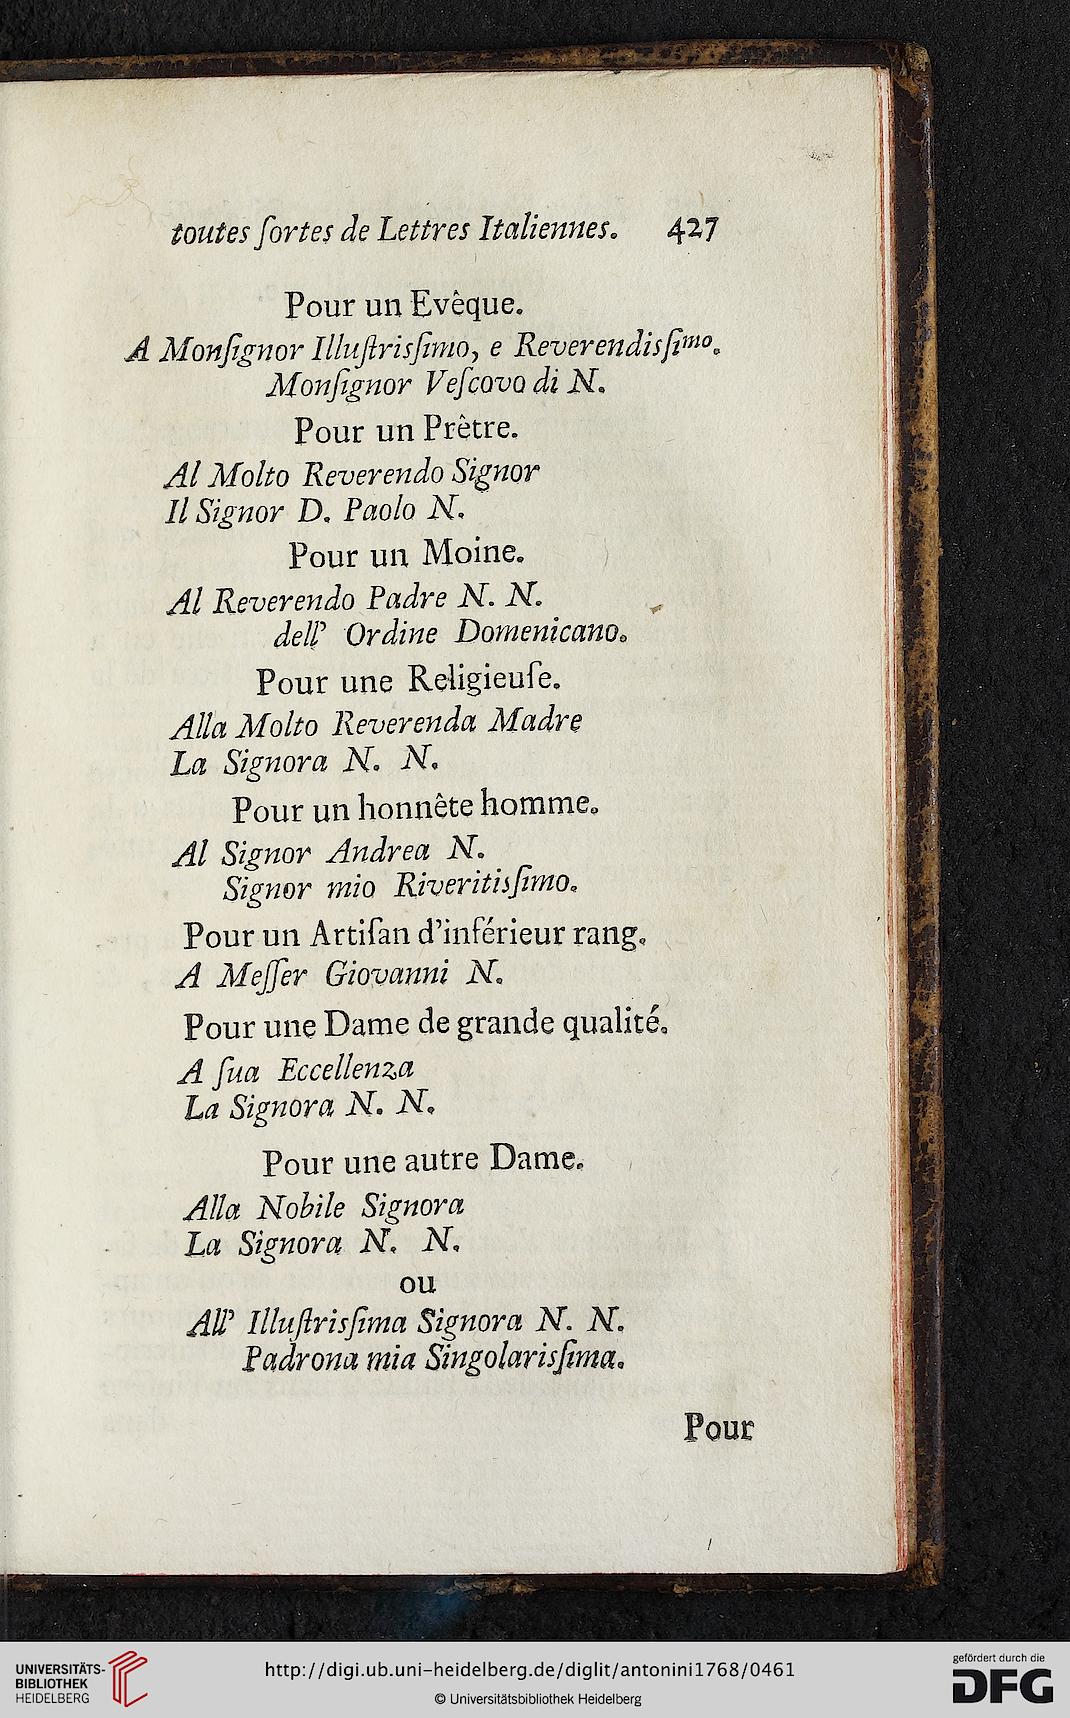 toutes ſortes de Lettres Italiennes. 427
Pour un Evêque.
A Monſignor Illuſtrisſimo, e Reverendisſimo.
Monſignor Veſcovo di N.
Pour un Prêtre.
Al Molto Reverendo Signor
Il Signor D. Paolo N.
Pour un Moine.
Al Reverendo Padre N. N.
dell' Ordine Domenicano.
Pour une Religieuſe.
Alla Molto Reverenda Madre
La Signora N. N.
Pour un honnête homme.
Al Signor Andrea N.
Signor mio Riveritisſimo.
Pour un Artiſan d'inférieur rang.
A Meſſer Giovanni N.
Pour une Dame de grande qualité.
A ſua Eccellenza
La Signora N. N.
Pour une autre Dame.
Alla Nobile Signora
La Signora N. N.
ou
All' Illuſtrisſima Signora N. N.
Padrona mia Singolarisſima.
Pour
UNIVERSITÄTS-
BIBLIOTHEK
HEIDELBERG
http://digi.ub.uni-heidelberg.de/diglit/antonini1768/0461
© Universitätsbibliothek Heidelberg
gefördert durch die
DFG